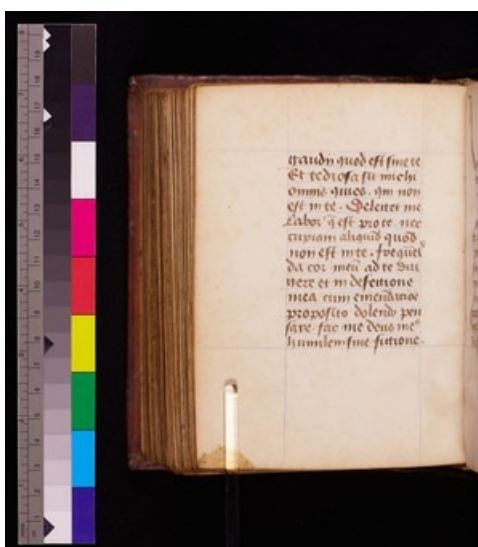 gaudiu quod est sine te
Et tediosa sit michi
omnis quies. que non
est in te. Delectet me
Labor q̃ est pro te nec
cupiam aliquid quod
non est in te. frequẽt
da cor meũ ad te diri
gere et in defectione
mea cum emendatiõe
proposito dolendo pen
sare. fac me deus meꝰ
humilem sine fictione.